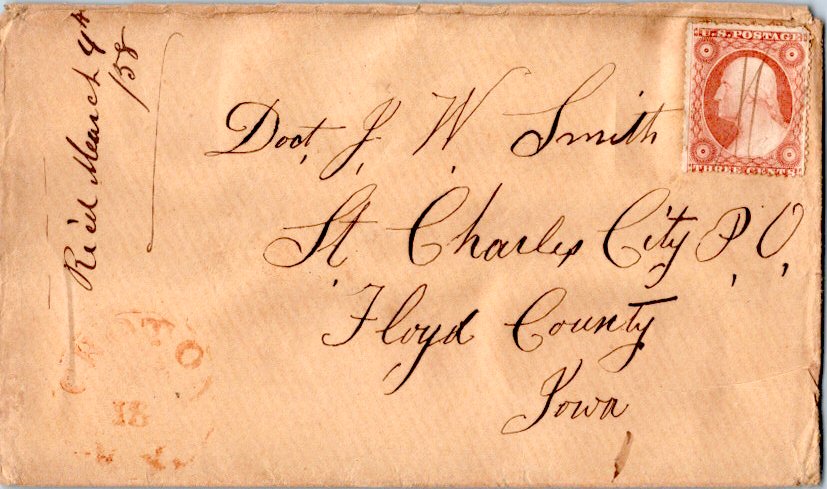 Rec'd March 4th
/58
U.S. POSTAGE
THREE CENTS
Doct. J. W. Smith
St Charles City P.O.
Floyd County
Iowa
18